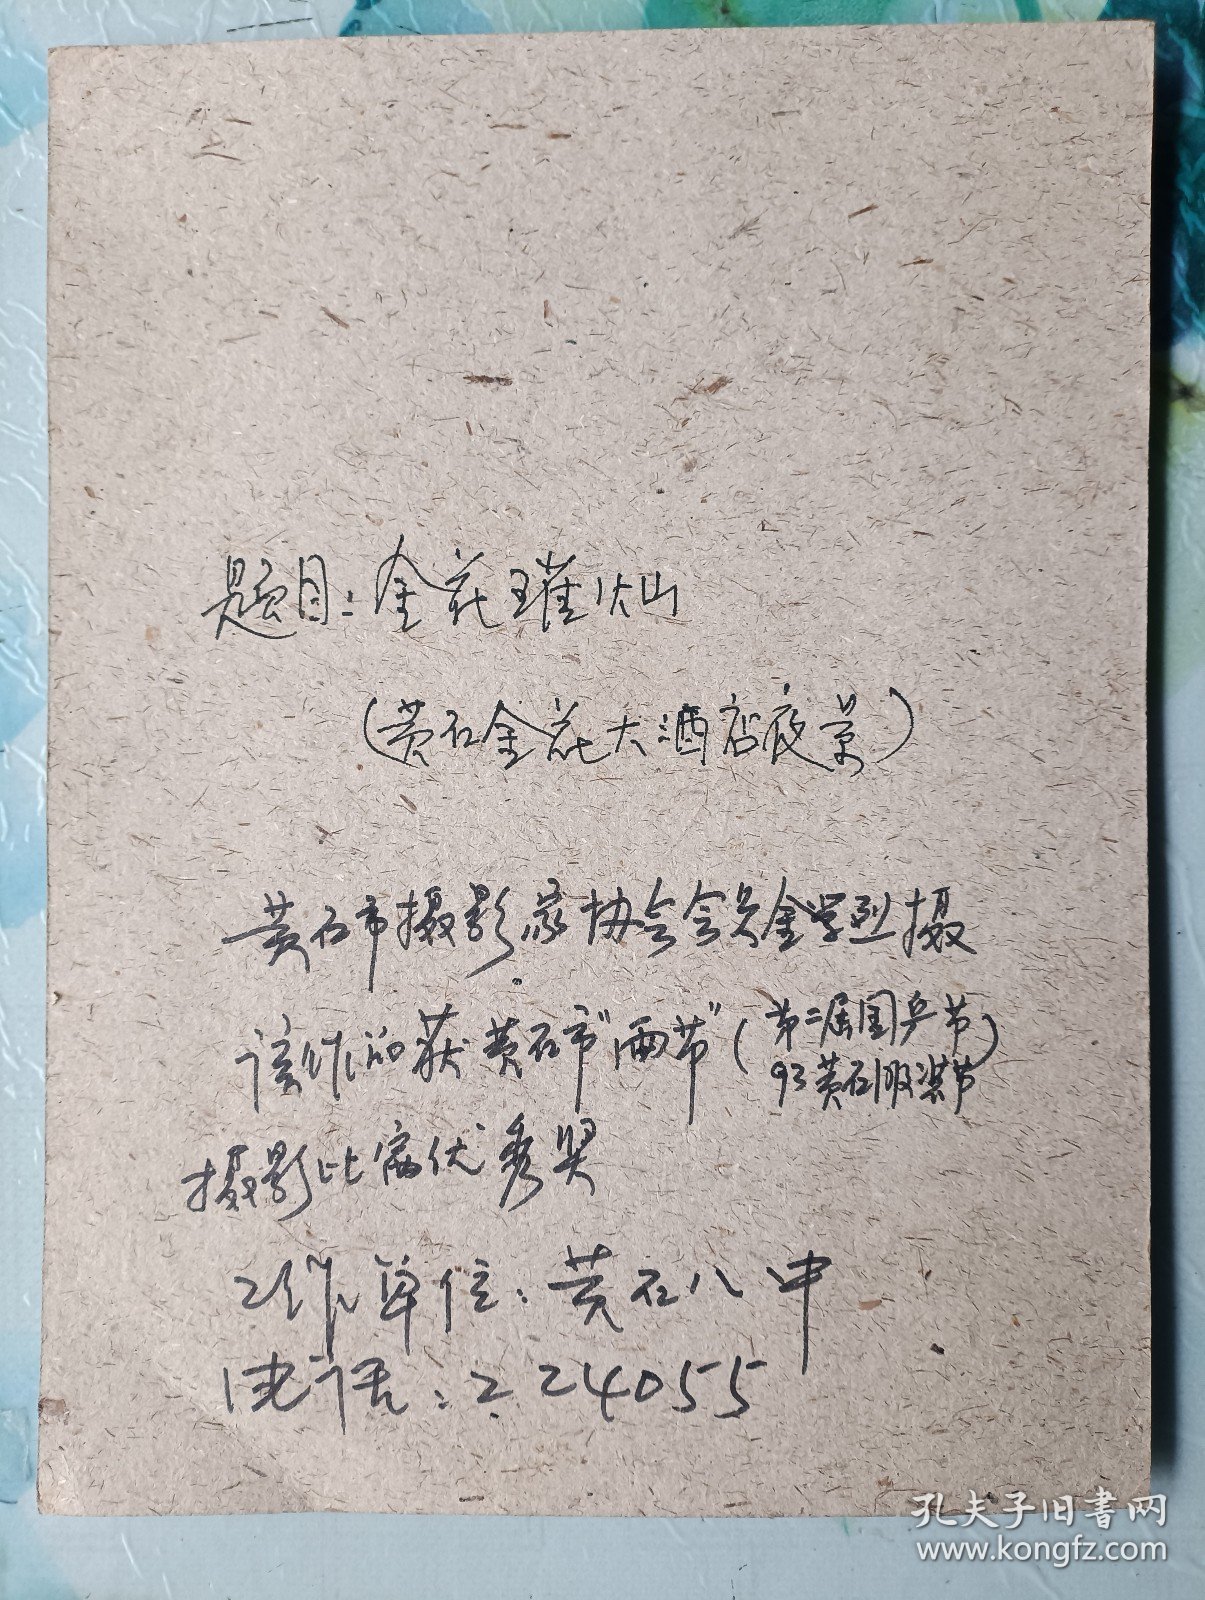 题目：金花璀灿
（黄石金花大酒店夜景）
黄石市摄影家协会会员金学烈摄
该作品获黄石市“两节”（第二届国乒节
93黄石服装节）
摄影比赛优秀奖
工作单位：黄石八中
电话：224055
孔夫子旧书网
www.kongfz.com